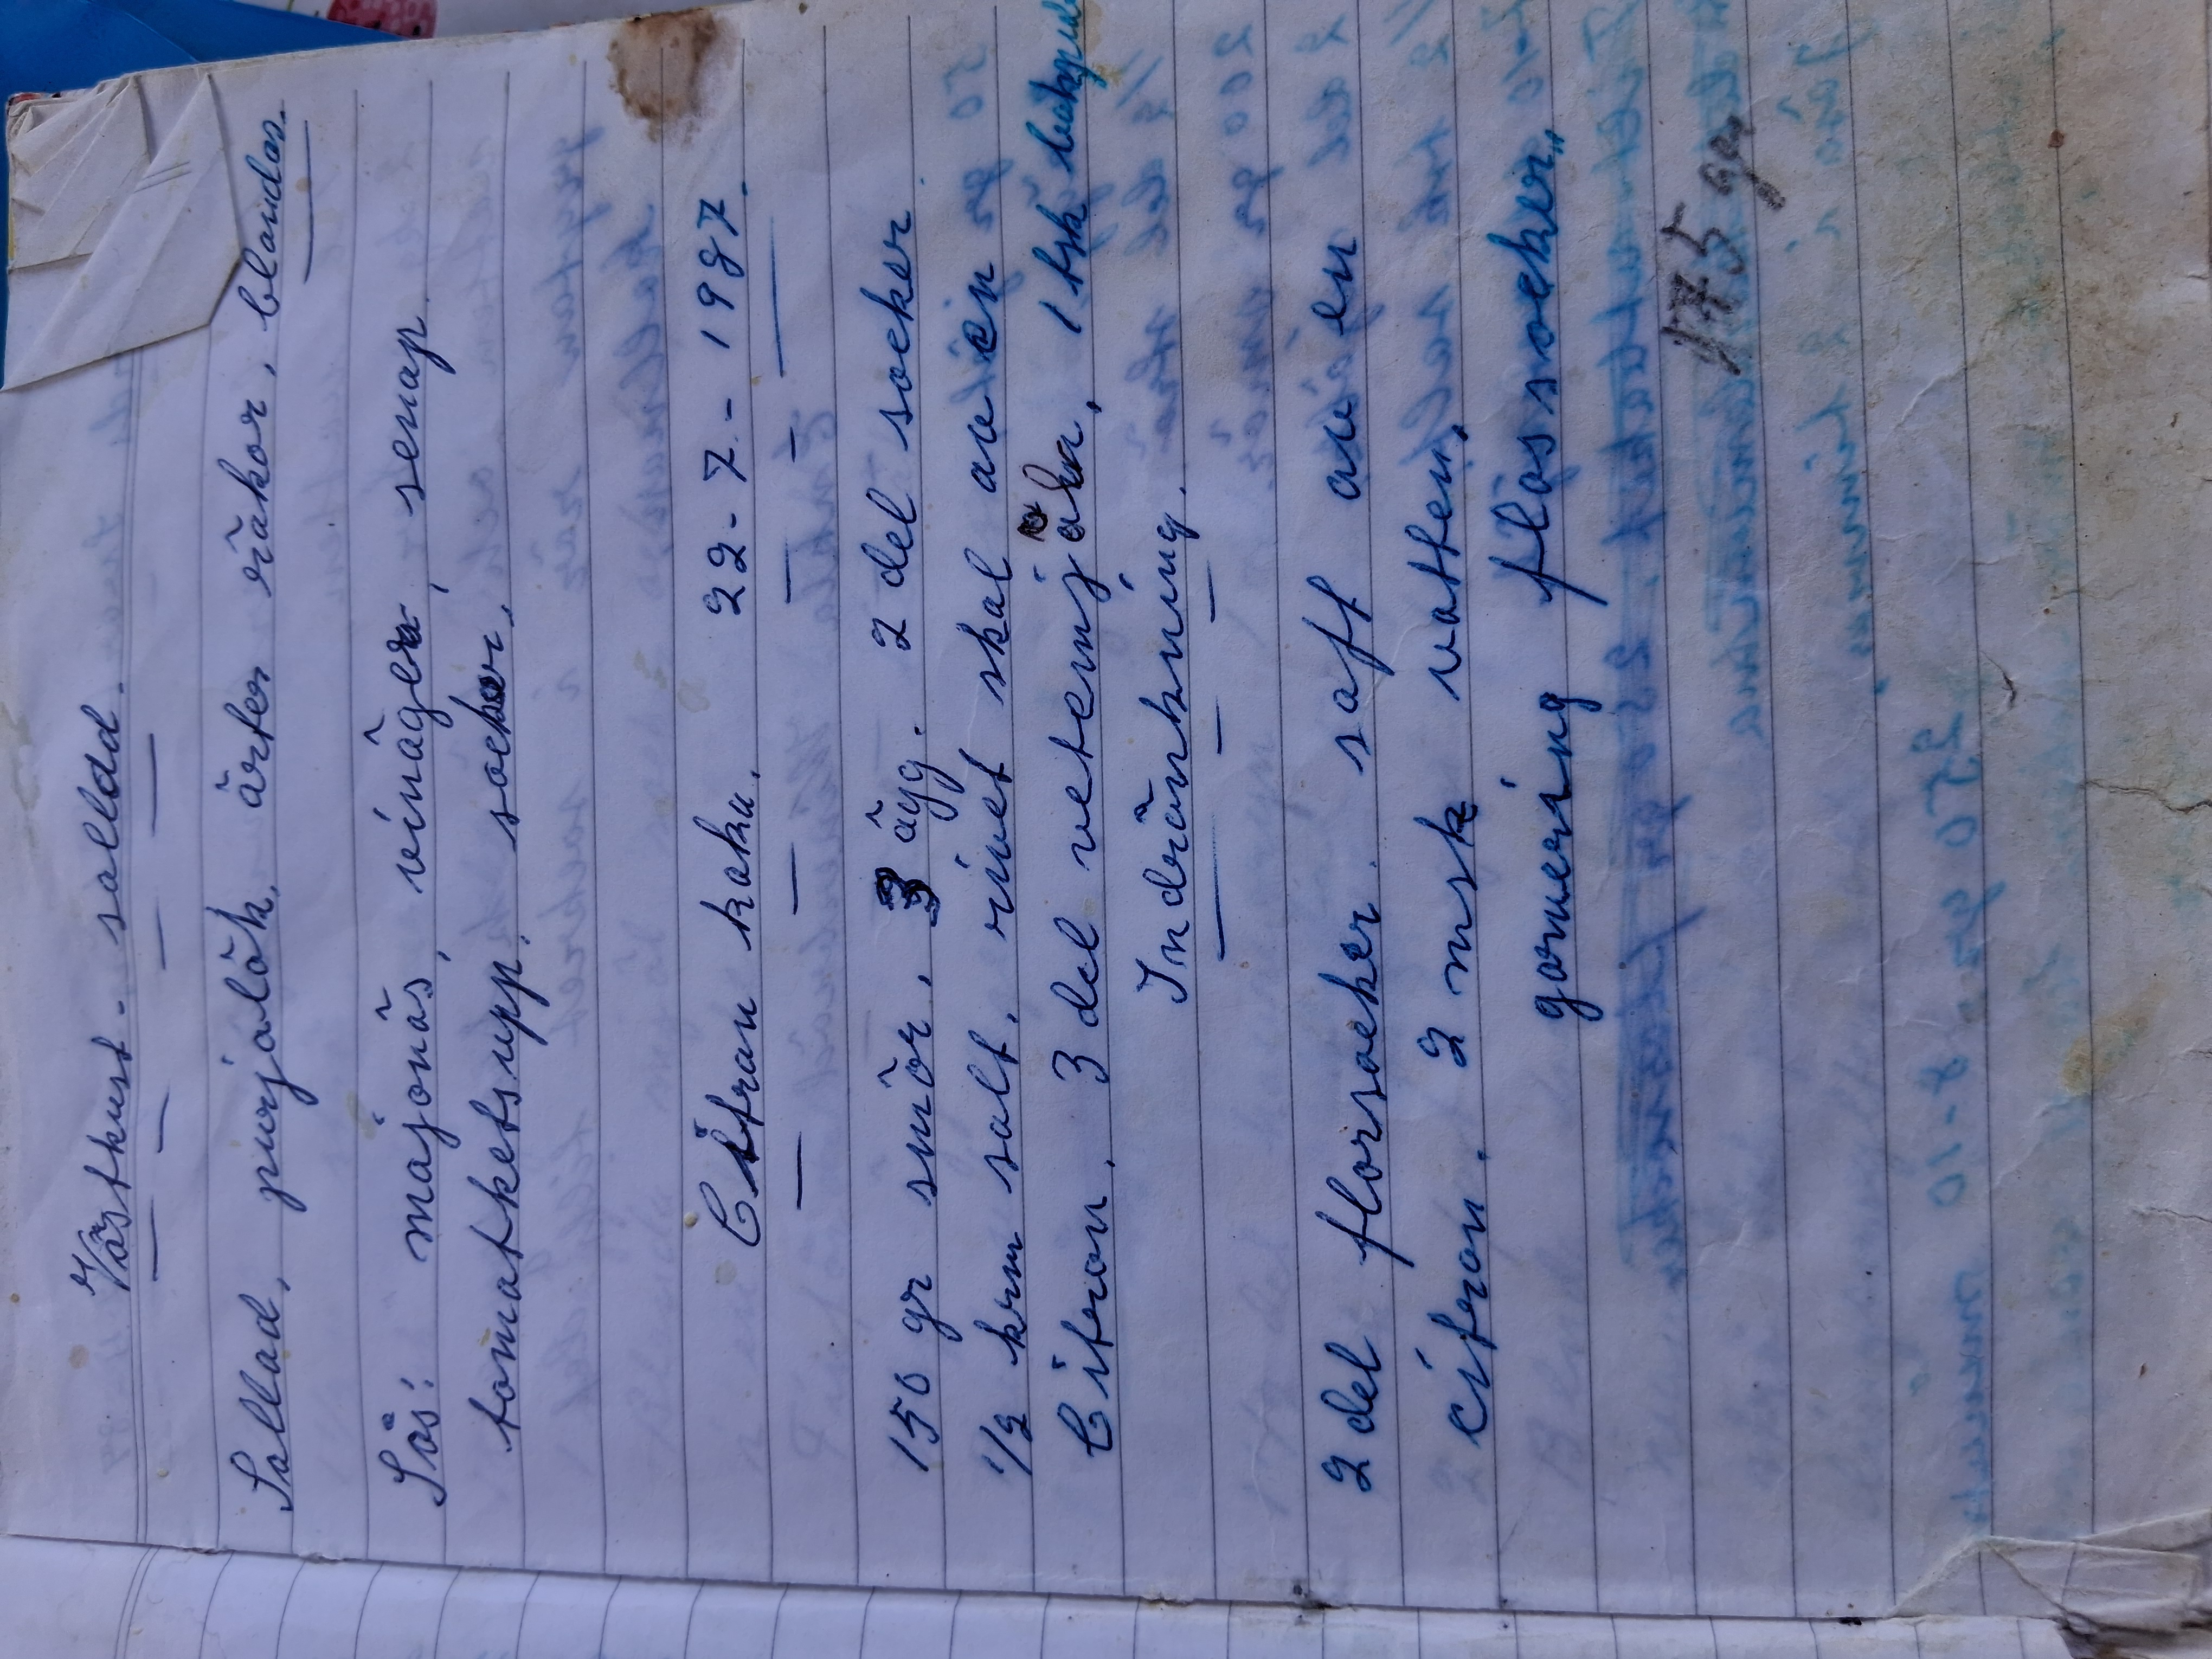 Västkust - sallad.
Sallad, purjolök, ärter räkor, blandas.
Sås: majonäs, vinäger, senap,
tomatketsupp, socker,
Citron kaka. 22-7-1987.
150 gr smör, 3 ägg. 2 del socker
1/2 krm salt, rivet skal av en
Citron. 3 del vetemjöl, 1 tsk bakpulv
Indränkning.
2 del florsocker. saft av en
citron. 2 msk vatten,
garnering flossocker,,
175 gr